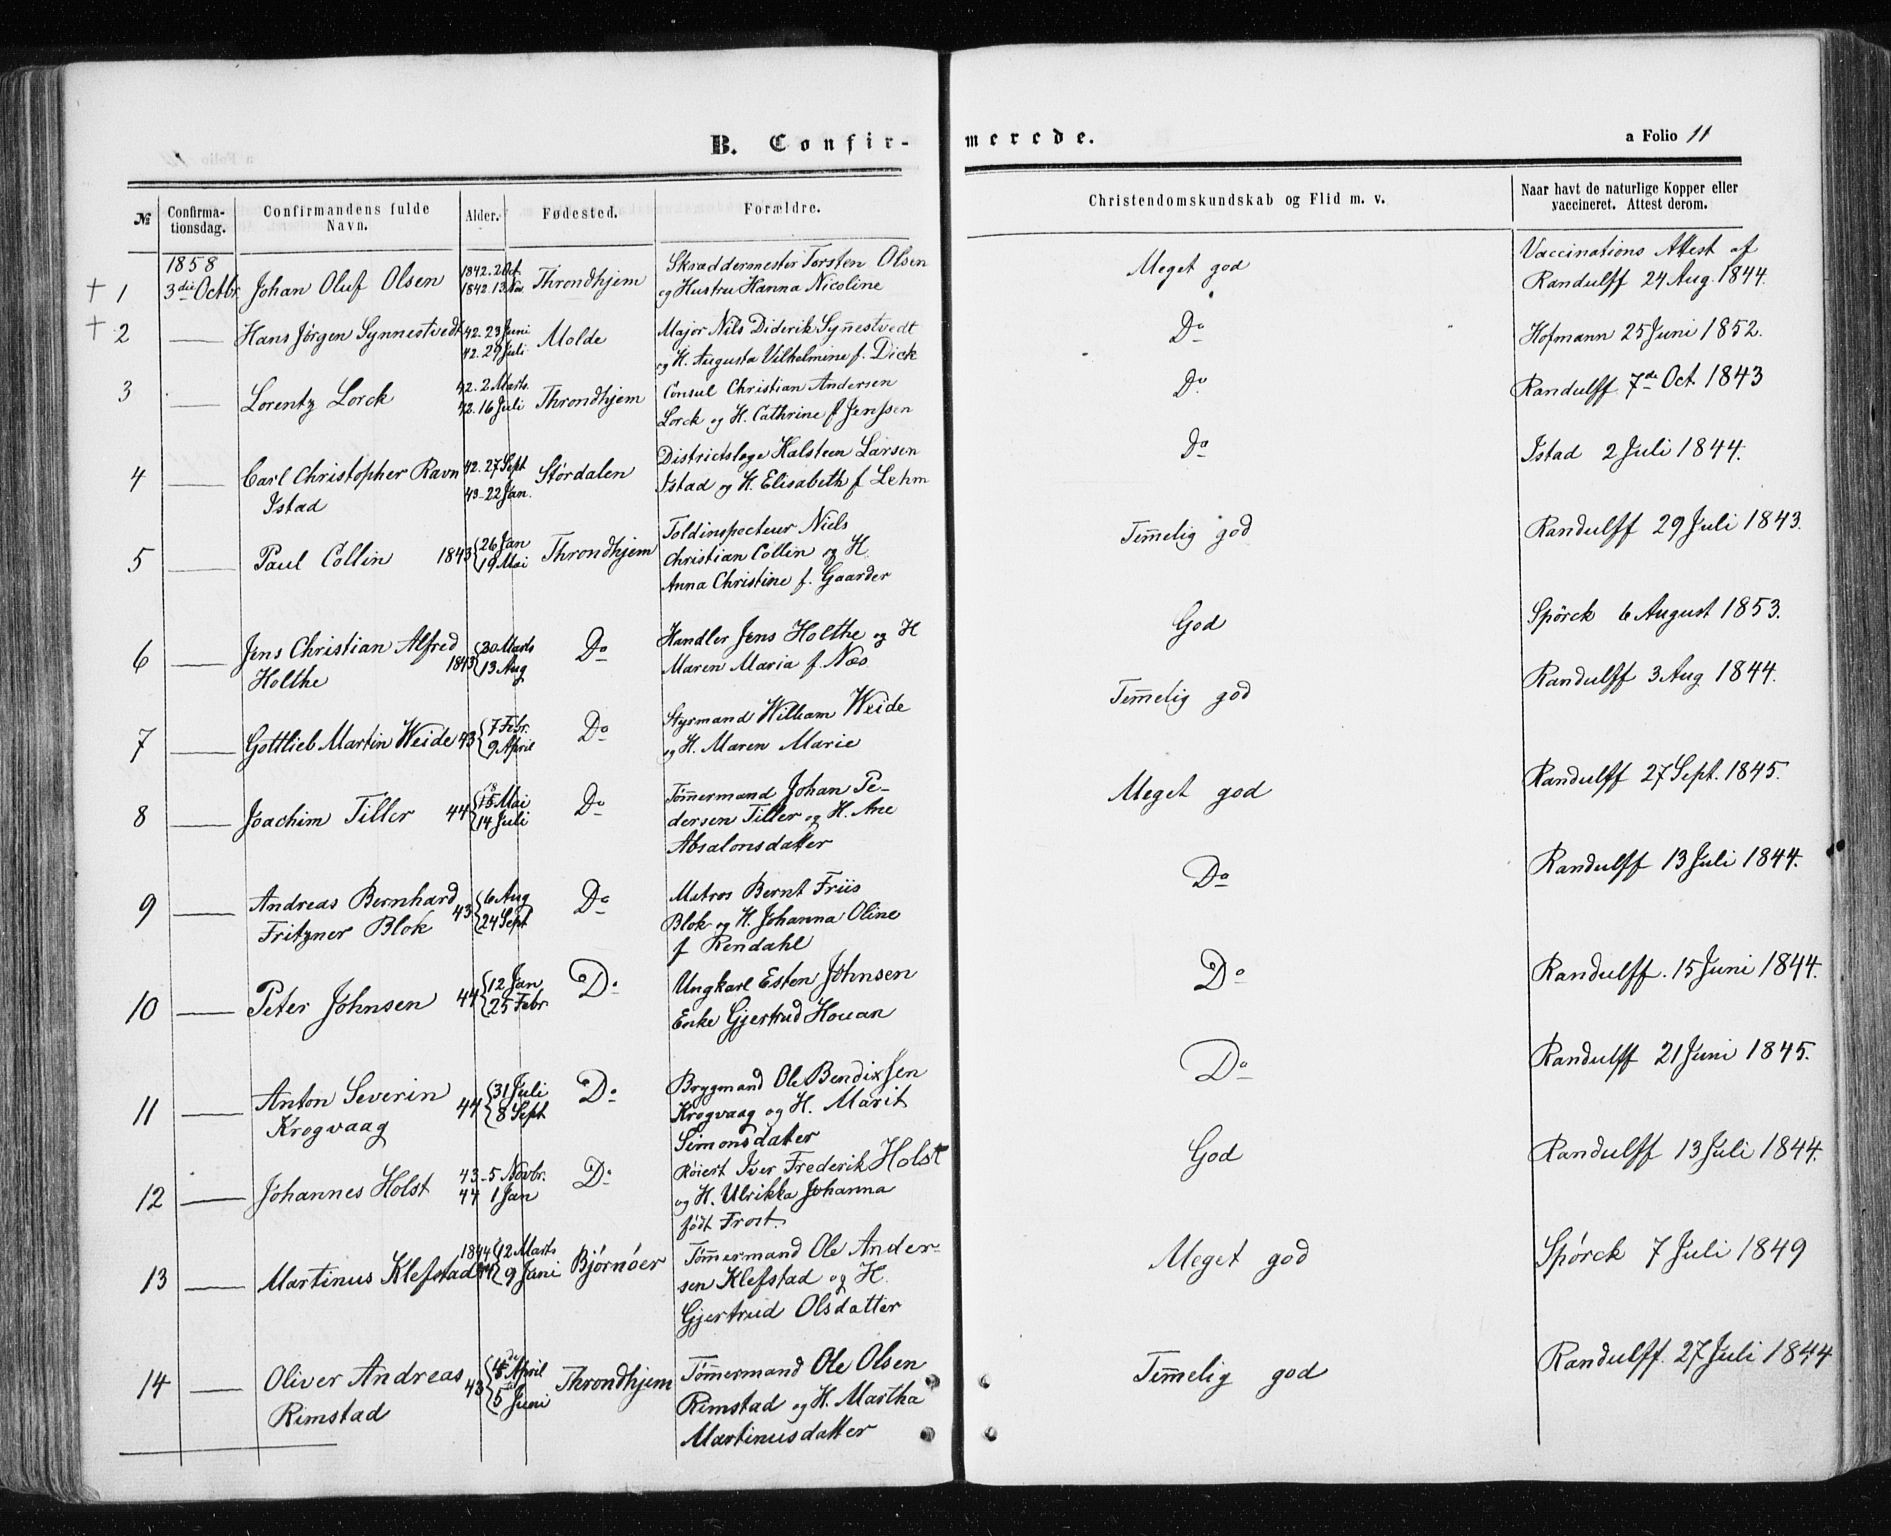 B. Confir-merede.
a Folio 11
№ Confirma-tionsdag. Confirmandens fulde Navn. Alder. Fødested. Forældre. Christendomskundskab og Flid m. v. Naar havt de naturlige Kopper eller vaccineret. Attest derom.
1858
† 1 3die Octbr. Johan Oluf Olsen 1842. 2 Oct. 1842. 13 Nov. Throndhjem Skræddermester Torsten Olsen Meget god Vaccinations Attest af
og Hustru Hanna Nicoline Randulff 24 Aug. 1844.
† 2 — Hans Jørgen Synnestvedt 42. 23 Juni Molde Major Nils Diderik Syn̄estvedt Do Hofmann 25 Juni 1852.
42. 29 Juli og H. Augusta Vilhelmine f. Dick
3 — Lorentz Lorck 42. 2 Marts. Throndhjem Consul Christian Andersen Do Randulff 7de Oct. 1843
42. 16 Juli Lorck og H. Cathrine f. Jenssen
4 — Carl Christopher Ravn 42. 27 Sept Størdalen Districtslæge Halsteen Larsen Do Istad 2 Juli 1844.
Istad 43. 22 Jan. Istad og H. Elisabeth f. Lehm
5 — Paul Collin 1843 26 Jan 19 Mai Throndhjem Toldinspecteur Niels Tem̄elig god Randulff 29 Juli 1843.
Christian Collin og H
Anna Christine f. Gaarder
6 — Jens Christian Alfred 1843 20 Marts Do Handler Jens Holthe og H God Spörck 6 August 1853.
Holthe 13 Aug Maren Maria f. Næs
7 — Gottlieb Martin Weide 43 7 Febr. Do Styrmand William Weide Tem̄elig god Randulff 3 Aug 1844.
9 April og H. Maren Marie
8 — Joachim Tiller 44 15 Mai Do Tøm̄ermand Johan Pe- Meget god Randulff 27 Sept. 1845.
14 Juli dersen Tiller og H. Ane
Absalonsdatter
9 — Andreas Bernhard 43 6 Aug Do Matros Bernt Friis Do Randulff 13 Juli 1844.
Fritzner Blok 24 Sept Blok og H. Johanna Oline
f Rendahl
10 — Peter Johnsen 44 12 Jan Do Ungkarl Esten Johnsen Do Randulff. 15 Juni 1844.
25 Febr. Enke Gjertrud Houan
11 — Anton Severin 44 31 Juli Do Brygmand Ole Bendixsen Do Randulff 21 Juni 1845.
Krogvaag 8 Sept Krogvaag og H. Marit
Simonsdatter
12 — Johannes Holst 43. 5 Novbr. Do Røiert Iver Frederik Holst God Randulff 13 Juli 1844.
44 1 Jan og H. Ulrikka Johanna
født Frost.
13 — Martinus Klefstad 1844 12 Marts Bjørnøer Tøm̄ermand Ole Ander- Meget god Spørck 7 Juli 1849
44 9 Juni sen Klefstad og H.
Gjertrud Olsdatter
14 — Oliver Andreas 43 April Throndhjem Tøm̄ermand Ole Olsen Tem̄elig god Randulff. 27 Juli 1844
Rimstad 5 Juni Rimstad og H. Martha
Martinusdatter